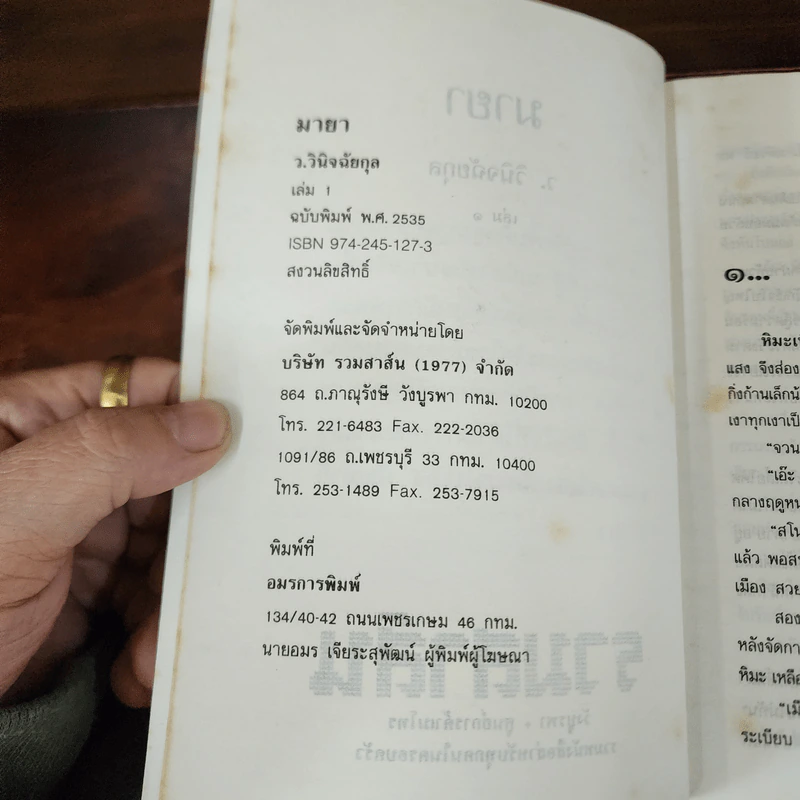 มายา
ว.วินิจฉัยกุล
เล่ม 1
ฉบับพิมพ์ พ.ศ. 2535
ISBN 974-245-127-3
สงวนลิขสิทธิ์
จัดพิมพ์และจัดจำหน่ายโดย
บริษัท รวมสาส์น (1977) จำกัด
864 ถ.ภาณุรังษี วังบูรพา กทม. 10200
โทร. 221-6483 Fax. 222-2036
1091/86 ถ.เพชรบุรี 33 กทม. 10400
โทร. 253-1489 Fax. 253-7915
พิมพ์ที่
อมรการพิมพ์
134/40-42 ถนนเพชรเกษม 46 กทม.
นายอมร เจียระสุพัฒน์ ผู้พิมพ์ผู้โฆษณา
๑...
แสง จึงส่อง
กิ่งก้านเล็ก
เงาทุกเงา
"จวน
"เอ๊ะ
แล้ว
เมือง
สอง
หิมะ
ระเบียบ